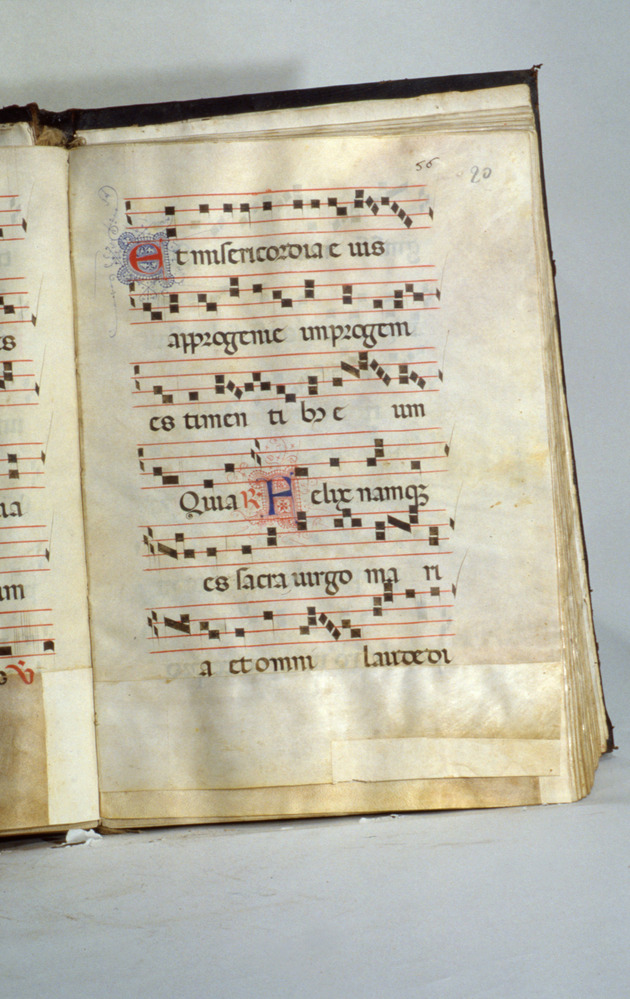 56 20
Et misericordia e ius
approgenie inprogeni
es timen ti bȝ e um
Quia R Felix namqȝ
es sacra uirgo ma ri
a et omni laude di